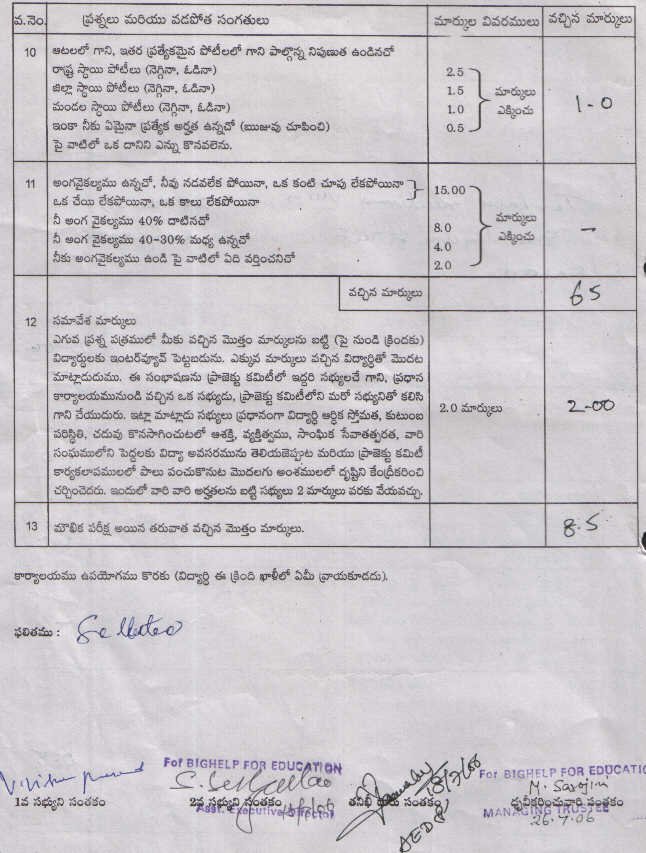 వ.నెం. ప్రశ్నలు మరియు వడపోత సంగతులు మార్కుల వివరములు వచ్చిన మార్కులు
10 ఆటలలో గాని, ఇతర ప్రత్యేకమైన పోటీలలో గాని పాల్గొన్న నిపుణుత ఉండినచో
రాష్ట్ర స్థాయి పోటీలు (నెగ్గినా, ఓడినా) 2.5
జిల్లా స్థాయి పోటీలు (నెగ్గినా, ఓడినా) 1.5 మార్కులు
మండల స్థాయి పోటీలు (నెగ్గినా, ఓడినా) 1.0 ఎక్కించు 1-0
ఇంకా నీకు ఏమైనా ప్రత్యేక అర్హత ఉన్నచో (ఋజువు చూపించి) 0.5
పై వాటిలో ఒక దానిని ఎన్ను కొనవలెను.
11 అంగవైకల్యము ఉన్నచో, నీవు నడవలేక పోయినా, ఒక కంటి చూపు లేకపోయినా 15.00
ఒక చేయి లేకపోయినా, ఒక కాలు లేకపోయినా
నీ అంగ వైకల్యము 40% దాటినచో 8.0 మార్కులు
నీ అంగ వైకల్యము 40-30% మధ్య ఉన్నచో 4.0 ఎక్కించు -
నీకు అంగవైకల్యము ఉండి పై వాటిలో ఏది వర్తించనిచో 2.0
వచ్చిన మార్కులు 65
12 సమావేశ మార్కులు
ఎగువ ప్రశ్న పత్రములో మీకు వచ్చిన మొత్తం మార్కులను బట్టి (పై నుండి క్రిందకు)
విద్యార్థులకు ఇంటర్‌వ్యూవ్ పెట్టబడును. ఎక్కువ మార్కులు వచ్చిన విద్యార్థితో మొదట
మాట్లాడుదుము. ఈ సంభాషణను ప్రాజెక్టు కమిటీలో ఇద్దరి సభ్యులచే గాని, ప్రధాన
కార్యాలయమునుండి వచ్చిన ఒక సభ్యుడు, ప్రాజెక్టు కమిటీలోని మరో సభ్యునితో కలిసి
గాని చేయుదురు. ఇట్లా మాట్లాడు సభ్యులు ప్రధానంగా విద్యార్థి ఆర్థిక స్తోమత, కుటుంబ 2.0 మార్కులు 2-00
పరిస్థితి, చదువు కొనసాగించుటలో ఆశక్తి, వ్యక్తిత్వము, సాంఘిక సేవాతత్పరత, వారి
సంఘములోని పెద్దలకు విద్యా అవసరమును తెలియజెప్పుట మరియు ప్రాజెక్టు కమిటీ
కార్యకలాపములలో పాలు పంచుకొనుట మొదలగు అంశములలో దృష్టిని కేంద్రీకరించి
చర్చించెదరు. ఇందులో వారి వారి అర్హతలను బట్టి సభ్యులు 2 మార్కులు వరకు వేయవచ్చు.
13 మౌఖిక పరీక్ష అయిన తరువాత వచ్చిన మొత్తం మార్కులు. 8.5
కార్యాలయము ఉపయోగము కొరకు (విద్యార్థి ఈ క్రింది ఖాళీలో ఏమీ వ్రాయకూడదు).
ఫలితము :
For BIGHELP FOR EDUCATION For BIGHELP FOR EDUCATIO
18/7/06 M. Sarojini
1వ సభ్యుని సంతకం 2వ సభ్యుని సంతకం సంతకం ధృవీకరించువారి సంతకం
Asst. Executive Director MANAGING TRUSTEE
AEDE 26.7.06